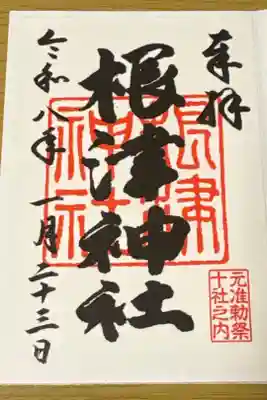 奉拝
根津神社
根津神社
元准勅祭
十社之内
令和八年 一月二十三日